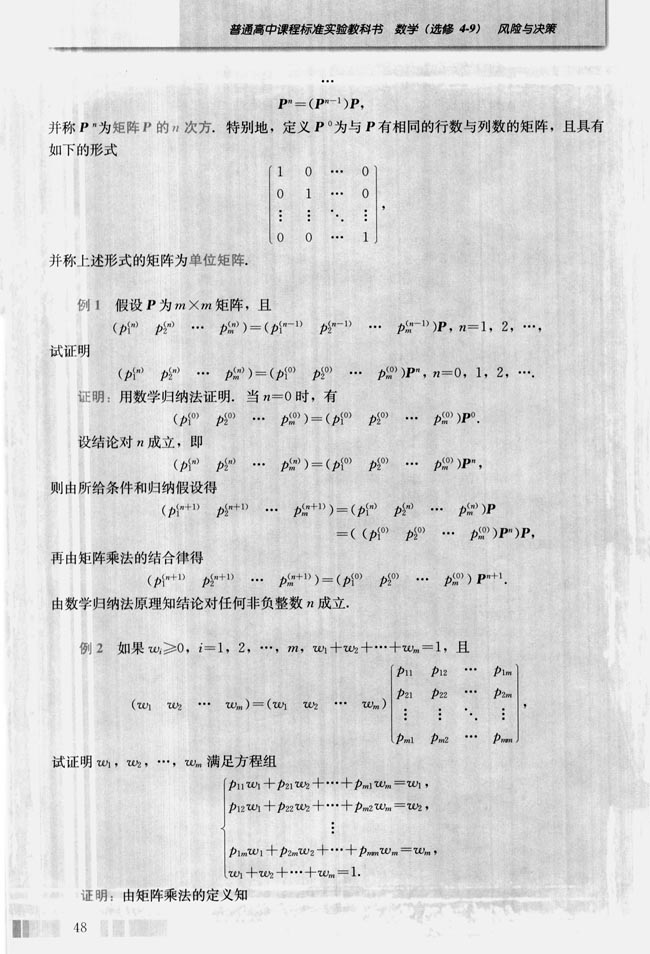 普通高中课程标准实验教科书 数学（选修 4-9） 风险与决策
…
Pⁿ=(Pⁿ⁻¹)P,
并称 Pⁿ为矩阵 P 的 n 次方．特别地，定义 P⁰为与 P 有相同的行数与列数的矩阵，且具有
如下的形式
1 0 … 0
0 1 … 0
⋮ ⋮ ⋱ ⋮
0 0 … 1 ,
并称上述形式的矩阵为单位矩阵．
例 1 假设 P 为 m×m 矩阵，且
(p₁⁽ⁿ⁾ p₂⁽ⁿ⁾ … pₘ⁽ⁿ⁾)=(p₁⁽ⁿ⁻¹⁾ p₂⁽ⁿ⁻¹⁾ … pₘ⁽ⁿ⁻¹⁾)P, n=1, 2, …,
试证明
(p₁⁽ⁿ⁾ p₂⁽ⁿ⁾ … pₘ⁽ⁿ⁾)=(p₁⁽⁰⁾ p₂⁽⁰⁾ … pₘ⁽⁰⁾)Pⁿ, n=0, 1, 2, ….
证明：用数学归纳法证明．当 n=0 时，有
(p₁⁽⁰⁾ p₂⁽⁰⁾ … pₘ⁽⁰⁾)=(p₁⁽⁰⁾ p₂⁽⁰⁾ … pₘ⁽⁰⁾)P⁰.
设结论对 n 成立，即
(p₁⁽ⁿ⁾ p₂⁽ⁿ⁾ … pₘ⁽ⁿ⁾)=(p₁⁽⁰⁾ p₂⁽⁰⁾ … pₘ⁽⁰⁾)Pⁿ,
则由所给条件和归纳假设得
(p₁⁽ⁿ⁺¹⁾ p₂⁽ⁿ⁺¹⁾ … pₘ⁽ⁿ⁺¹⁾)=(p₁⁽ⁿ⁾ p₂⁽ⁿ⁾ … pₘ⁽ⁿ⁾)P
=((p₁⁽⁰⁾ p₂⁽⁰⁾ … pₘ⁽⁰⁾)Pⁿ)P,
再由矩阵乘法的结合律得
(p₁⁽ⁿ⁺¹⁾ p₂⁽ⁿ⁺¹⁾ … pₘ⁽ⁿ⁺¹⁾)=(p₁⁽⁰⁾ p₂⁽⁰⁾ … pₘ⁽⁰⁾) Pⁿ⁺¹.
由数学归纳法原理知结论对任何非负整数 n 成立．
例 2 如果 wᵢ≥0, i=1, 2, …, m, w₁+w₂+…+wₘ=1, 且
(w₁ w₂ … wₘ)=(w₁ w₂ … wₘ)
p₁₁ p₁₂ … p₁ₘ
p₂₁ p₂₂ … p₂ₘ
⋮ ⋮ ⋱ ⋮
pₘ₁ pₘ₂ … pₘₘ ,
试证明 w₁, w₂, …, wₘ 满足方程组
p₁₁w₁+p₂₁w₂+…+pₘ₁wₘ=w₁,
p₁₂w₁+p₂₂w₂+…+pₘ₂wₘ=w₂,
⋮
p₁ₘw₁+p₂ₘw₂+…+pₘₘwₘ=wₘ,
w₁+w₂+…+wₘ=1.
证明：由矩阵乘法的定义知
48